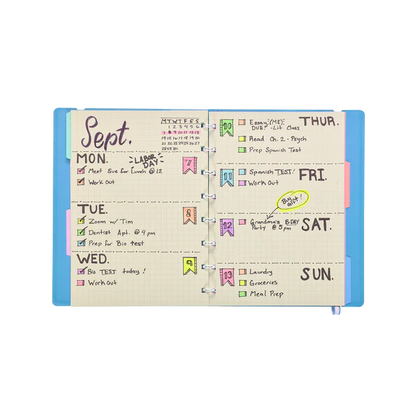 Sept.
M T W T F S S
MON.
LABOR DAY
7
Meet Sue for Lunch @ 12
Work Out
TUE.
8
Zoom w/ Tim
Dentist Apt. @ 4 pm
Prep for Bio test
WED.
9
Bio TEST today!
Work Out
THUR.
10
Essay (ME)
DUE! - Lit Class
Read Ch. 2 - Psych
Prep Spanish Test
FRI.
11
Spanish TEST!
Work Out
SAT.
12
Buy Gift!
Grandma's B-DAY
Party @ 5 pm
SUN.
13
Laundry
Groceries
Meal Prep